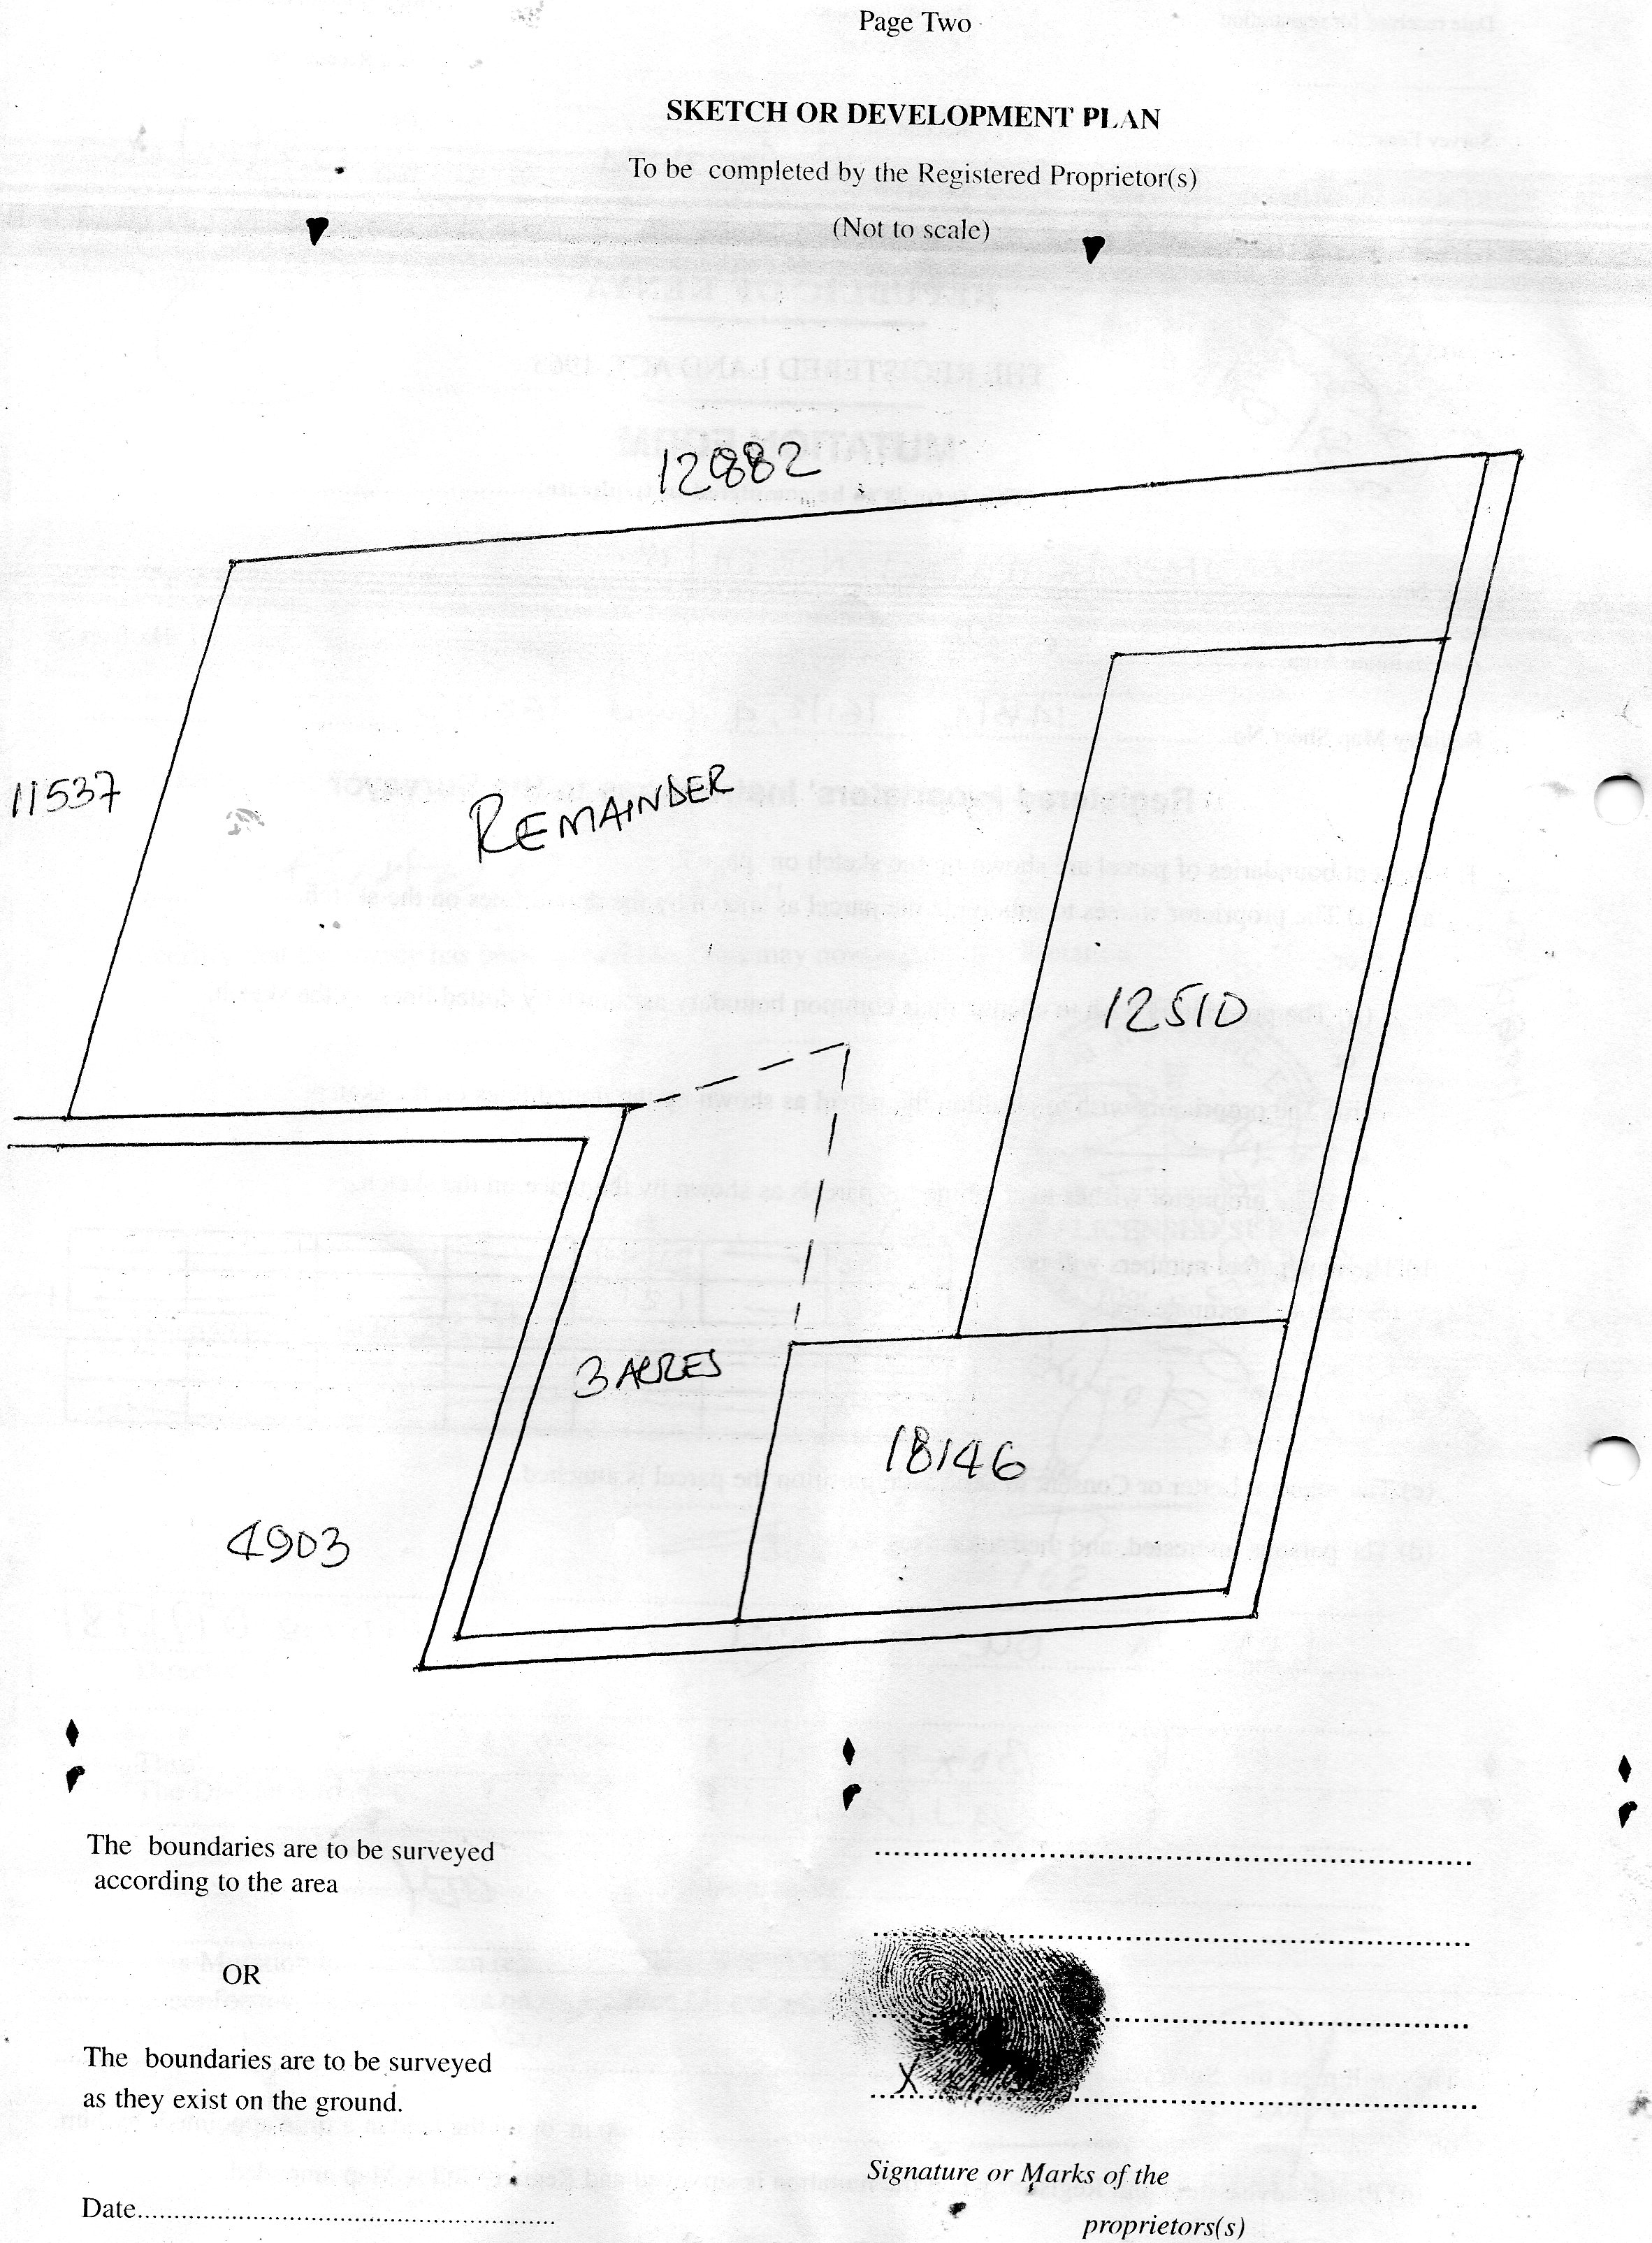 Page Two
SKETCH OR DEVELOPMENT PLAN
To be completed by the Registered Proprietor(s)
(Not to scale)
12882
11537
REMAINDER
12510
3 ACRES
18146
4903
The boundaries are to be surveyed
according to the area
OR
The boundaries are to be surveyed
as they exist on the ground.
X
Signature or Marks of the
proprietors(s)
Date